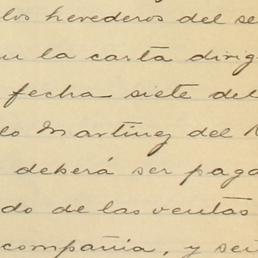 los herederos del se
u la carta dirig
fecha siete del
lo Martinez del
deberá ser paga
do de las ventas
compañia, y se